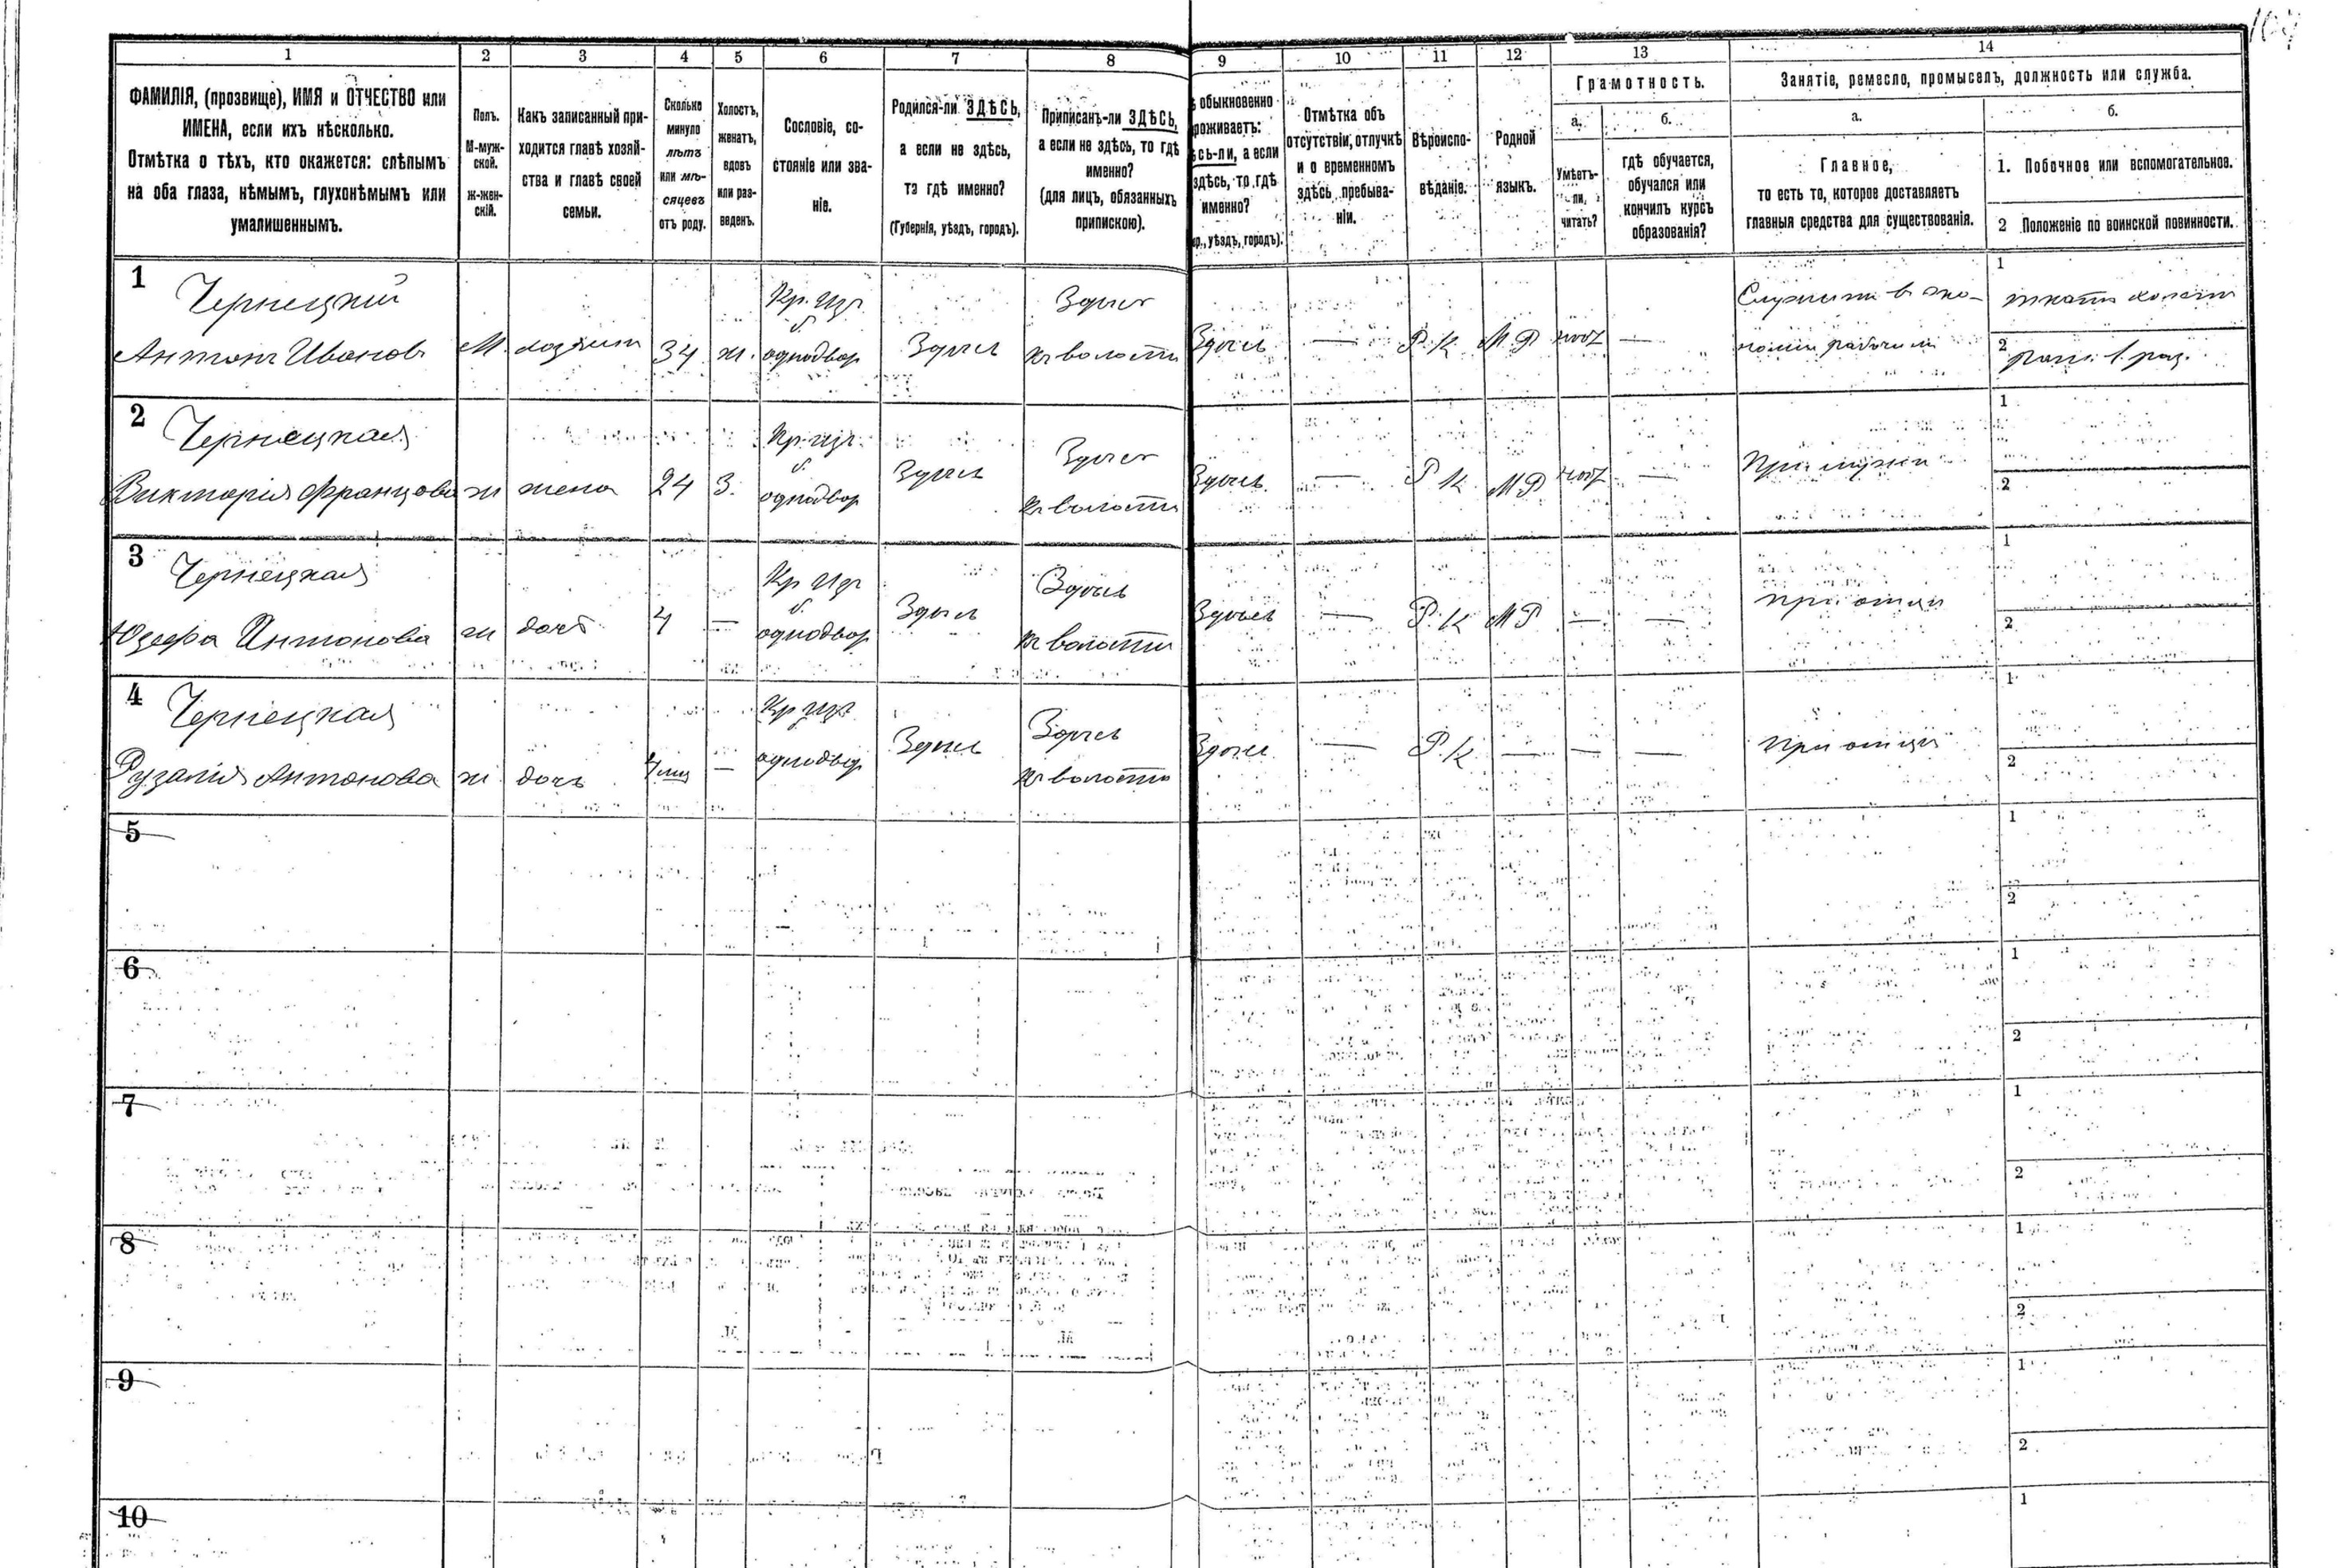 1 2 3 4 5 6 7 8 9 10 11 12 13 14
ФАМИЛІЯ, (прозвище), ИМЯ и ОТЧЕСТВО или
ИМЕНА, если ихъ нѣсколько.
Отмѣтка о тѣхъ, кто окажется: слѣпымъ
на оба глаза, нѣмымъ, глухонѣмымъ или
умалишеннымъ.
Полъ.
М-муж-
ской.
Ж-жен-
скій.
Какъ записанный при-
ходится главѣ хозяй-
ства и главѣ своей
семьи.
Сколько
минуло
лѣтъ
или мѣ-
сяцевъ
отъ роду.
Холостъ,
женатъ,
вдовъ
или раз-
веденъ.
Сословіе, со-
стояніе или зва-
ніе.
Родился-ли ЗДѢСЬ,
а если не здѣсь,
то гдѣ именно?
(Губернія, уѣздъ, городъ).
Приписанъ-ли ЗДѢСЬ,
а если не здѣсь, то гдѣ
именно?
(для лицъ, обязанныхъ
припискою).
обыкновенно
роживаетъ:
сь-ли, а если
здѣсь, то гдѣ
именно?
р., уѣздъ, городъ).
Отмѣтка объ
отсутствіи, отлучкѣ
и о временномъ
здѣсь пребыва-
ніи.
Вѣроиспо-
вѣданіе.
Родной
языкъ.
Грамотность.
а.
Умѣетъ-
ли
читать?
б.
гдѣ обучается,
обучался или
кончилъ курсъ
образованія?
Занятіе, ремесло, промыселъ, должность или служба.
а.
Главное,
то есть то, которое доставляетъ
главныя средства для существованія.
б.
1. Побочное или вспомогательное.
2 Положеніе по воинской повинности.
1
Чернецкій
Антонъ Ивановъ
М.
хозяинъ
34
ж.
Кр. изъ
б.
однодвор
Здѣсь
Здѣсь
въ волости
Здѣсь
—
Р. К
М Р
—
Служитъ въ эко-
номіи рабочимъ
1
2
2
Чернецкая
Викторія Францова
ж
жена
24
З.
Кр. изъ
б.
однодвор
Здѣсь
Здѣсь
въ волости
Здѣсь
—
Р К
М Р
—
При мужѣ
1
2
3
Чернецкая
Юзефа Антонова
ж
дочь
4
—
Кр изъ
б.
однодвор
Здѣсь
Здѣсь
въ волости
Здѣсь
—
Р. К
М Р
—
—
При отцѣ
1
2
4
Чернецкая
Рузалія Антонова
ж
дочь
—
Кр изъ
б
однодвор
Здѣсь
Здѣсь
въ волости
Здѣсь
—
Р. К
—
—
—
При отцѣ
1
2
5
1
2
6
1
2
7
1
2
8
1
2
9
1
2
10
1